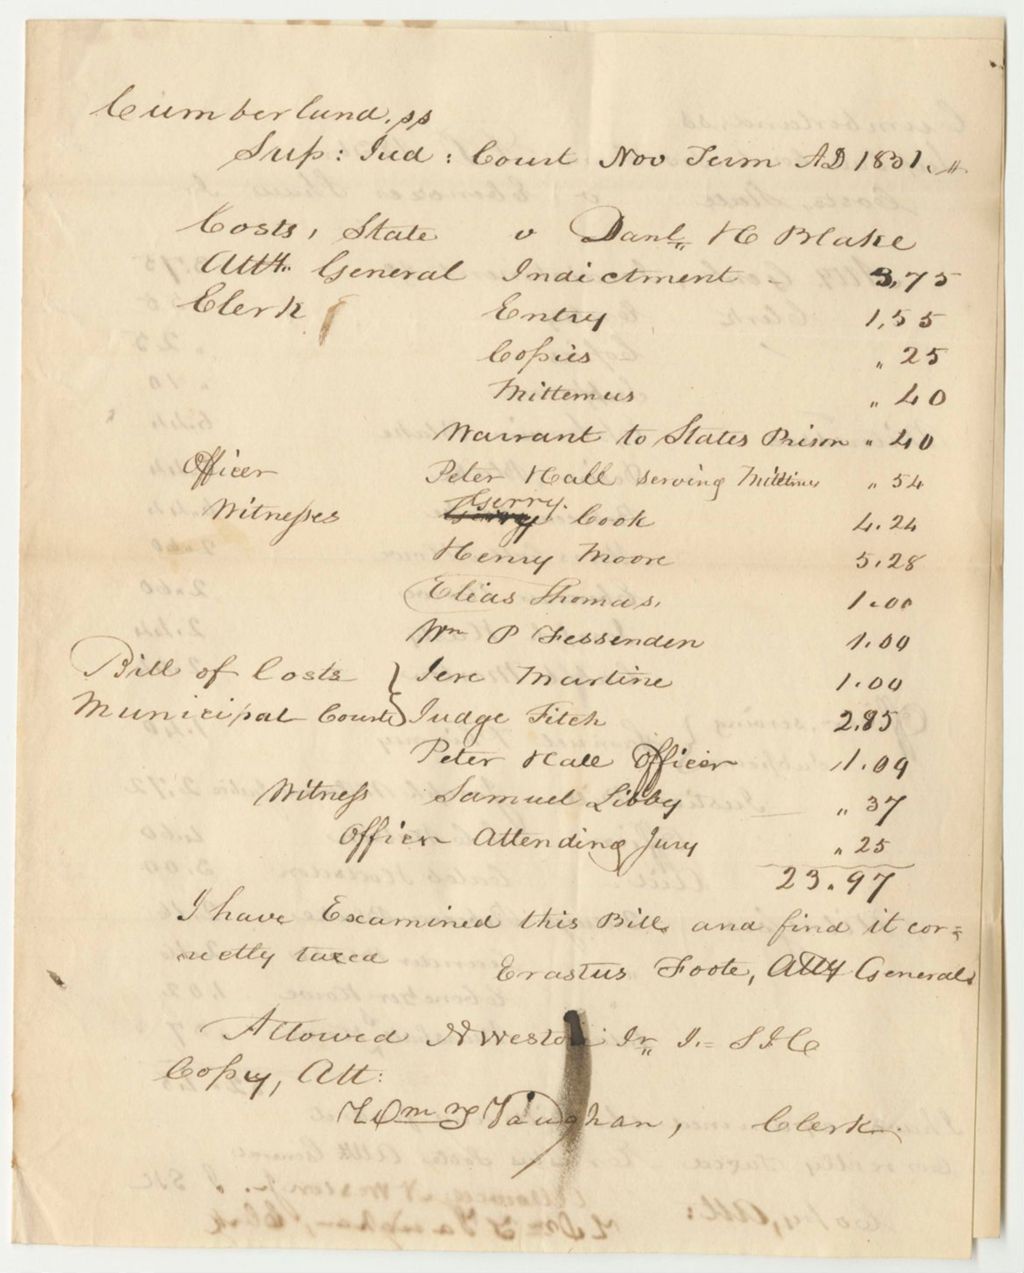 Cumberland. ss
Sup: Jud: Court Nov Term AD 1831. "
Costs, State v Danl. H Blake
Atty. General Indictment 3,75
Clerk Entry 1,55
Copies " 25
Mittemus " 40
Warrant to States Prison " 40
Officer Peter Hall serving Mittimus " 54
Witnesses Gerry. Cook 4.24
Henry Moore 5.28
Elias Thomas, 1.00
Wm P Fessenden 1.00
Bill of Costs } Jere Martine 1.00
Municipal Court } Judge Fitch 2.85
Peter Hall Officer 1.09
Witness Samuel Libby " 37
Officer Attending Jury " 25
23.97
I have Examined this Bill, and find it cor=
rectly taxed Erastus Foote, Atty General.
Allowed N Weston Jr. J. = S.J.C
Copy, Att:
Vaughan, Clerk.